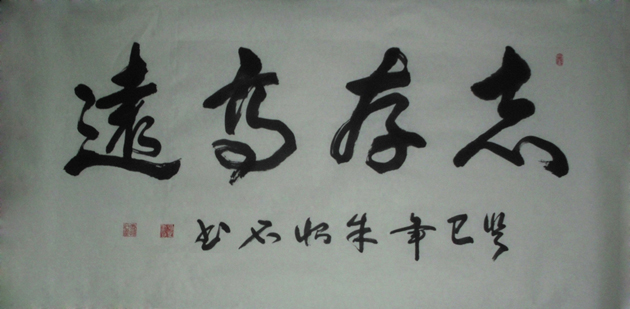 志存高遠
癸巳年朱
书